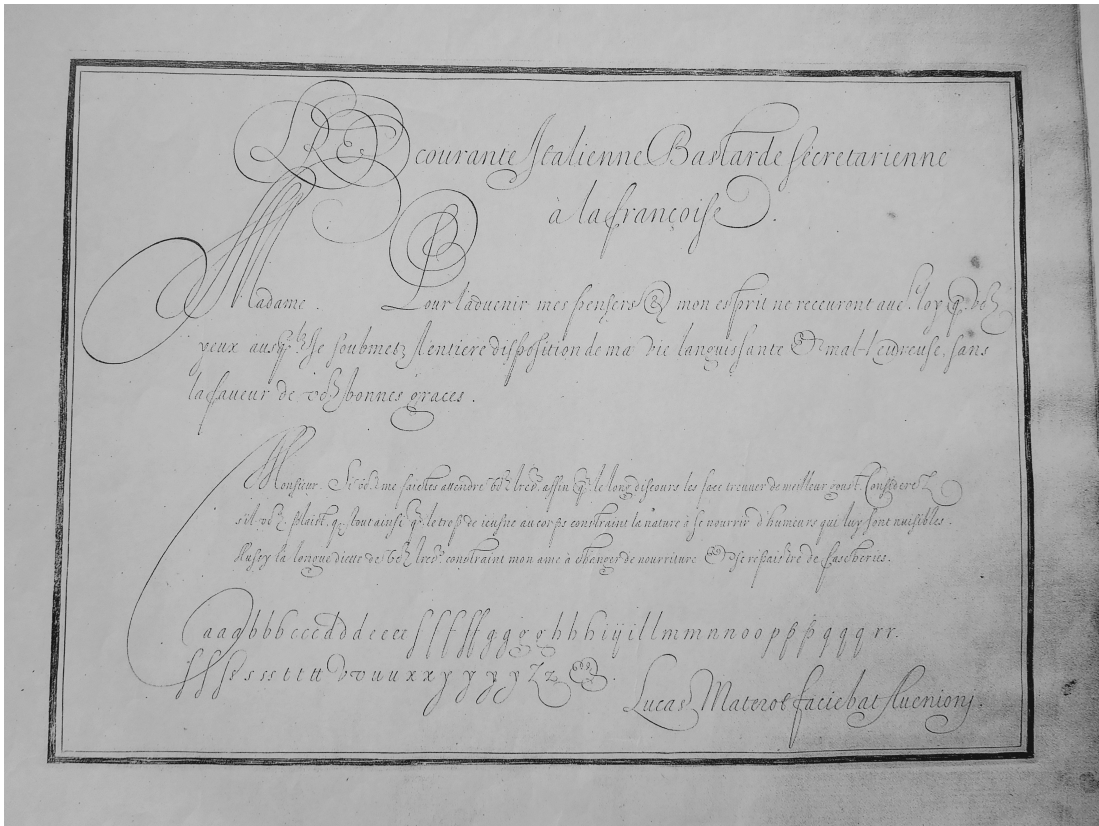 LRE courante Italienne Bastarde secretarienne
à la françoise.
Madame. Pour l'aduenir mes pensers & mon esprit ne receuront auc. loy q. de voz
yeux ausq.lz Ie soubmetz l'entiere disposition de ma vie languissante & mal-heureuse, sans
la faueur de voz bonnes graces.
Monsieur. Si voz me faictes attendre voz lres. affin q. le long discours les face treuuer de meilleur goust Considerez
s'il voz plaist. q. tout ainsi q. le trop de ieusne au corps constraint la nature à se nourrir d'humeurs qui luy sont nuisibles.
Aussy la longue diette de voz lres. constraint mon ame à changer de nourriture & se repaistre de fascheries.
aaabbbcccdddeeee ſſffffgggghhhiÿillmmnnnoopppqqqrr.
ſſſsssstttt vvuuxxyyyyzz &.
Lucas Materot faciebat Auenionj.